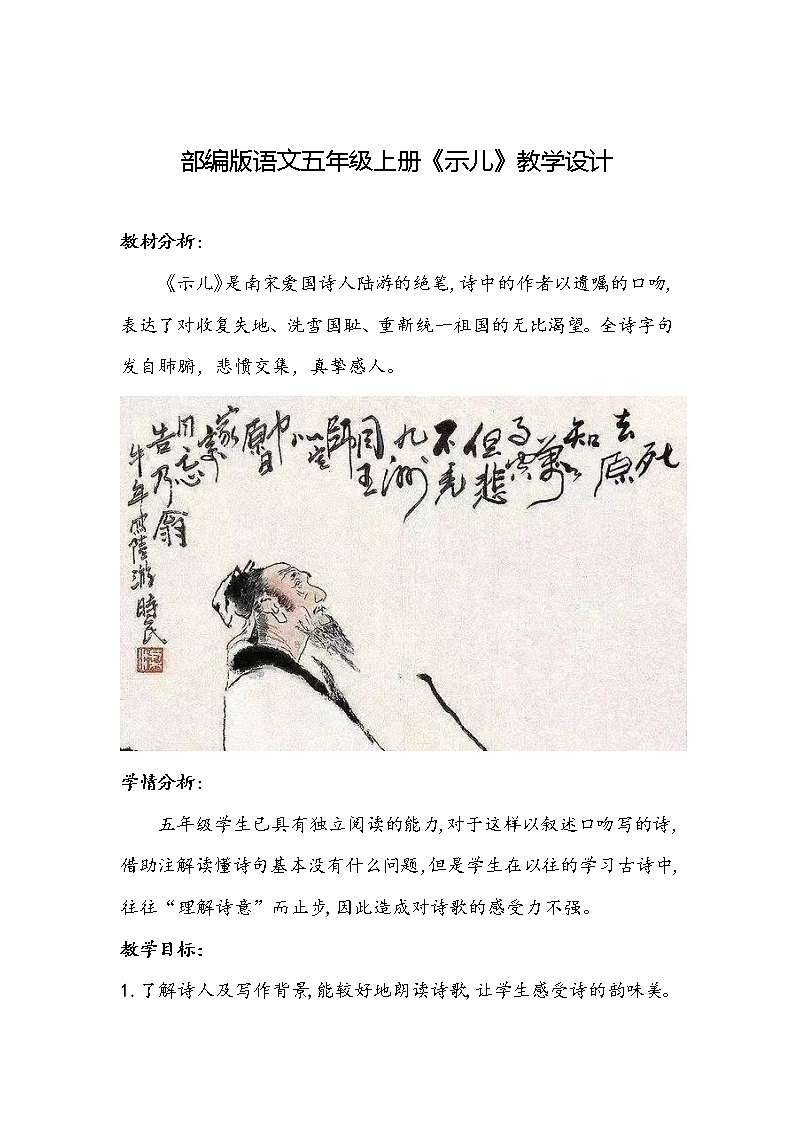 部编版语文五年级上册《示儿》教学设计
教材分析：
《示儿》是南宋爱国诗人陆游的绝笔,诗中的作者以遗嘱的口吻,
表达了对收复失地、洗雪国耻、重新统一祖国的无比渴望。全诗字句
发自肺腑，悲愤交集，真挚感人。
死
去原
知
萬
事空
但悲
不見
九洲
同王
師
北定
中
原日
家祭
毋忘
告乃翁
牛年陸游時民
学情分析：
五年级学生已具有独立阅读的能力,对于这样以叙述口吻写的诗,
借助注解读懂诗句基本没有什么问题,但是学生在以往的学习古诗中,
往往“理解诗意”而止步,因此造成对诗歌的感受力不强。
教学目标：
1.了解诗人及写作背景,能较好地朗读诗歌,让学生感受诗的韵味美。